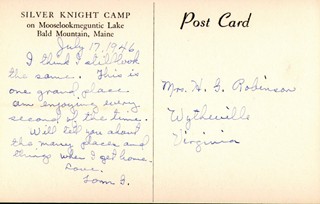 SILVER KNIGHT CAMP
on Mooselookmeguntic Lake
Bald Mountain, Maine
Post Card
July 17, 1946.
I think I still look
the same. This is
one grand place
am enjoying every
second of the time.
Will tell you about
the many places and
things when I get home.
Love.
Mrs. H. G. Robinson
Wytheville
Virginia